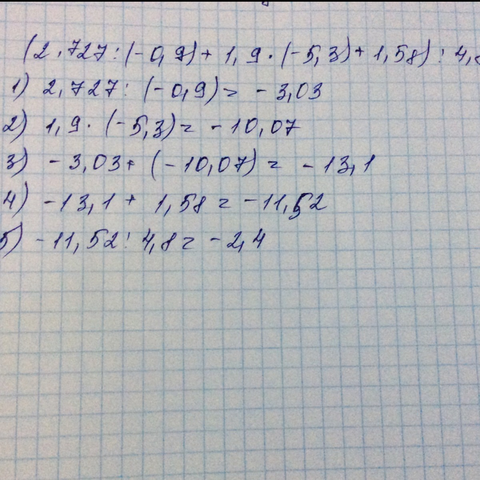 (2,727:(-0,9)+1,9·(-5,3)+1,58):4,8
1) 2,727:(-0,9)= -3,03
2) 1,9·(-5,3)= -10,07
3) -3,03+(-10,07)= -13,1
4) -13,1+1,58= -11,52
5) -11,52:4,8= -2,4